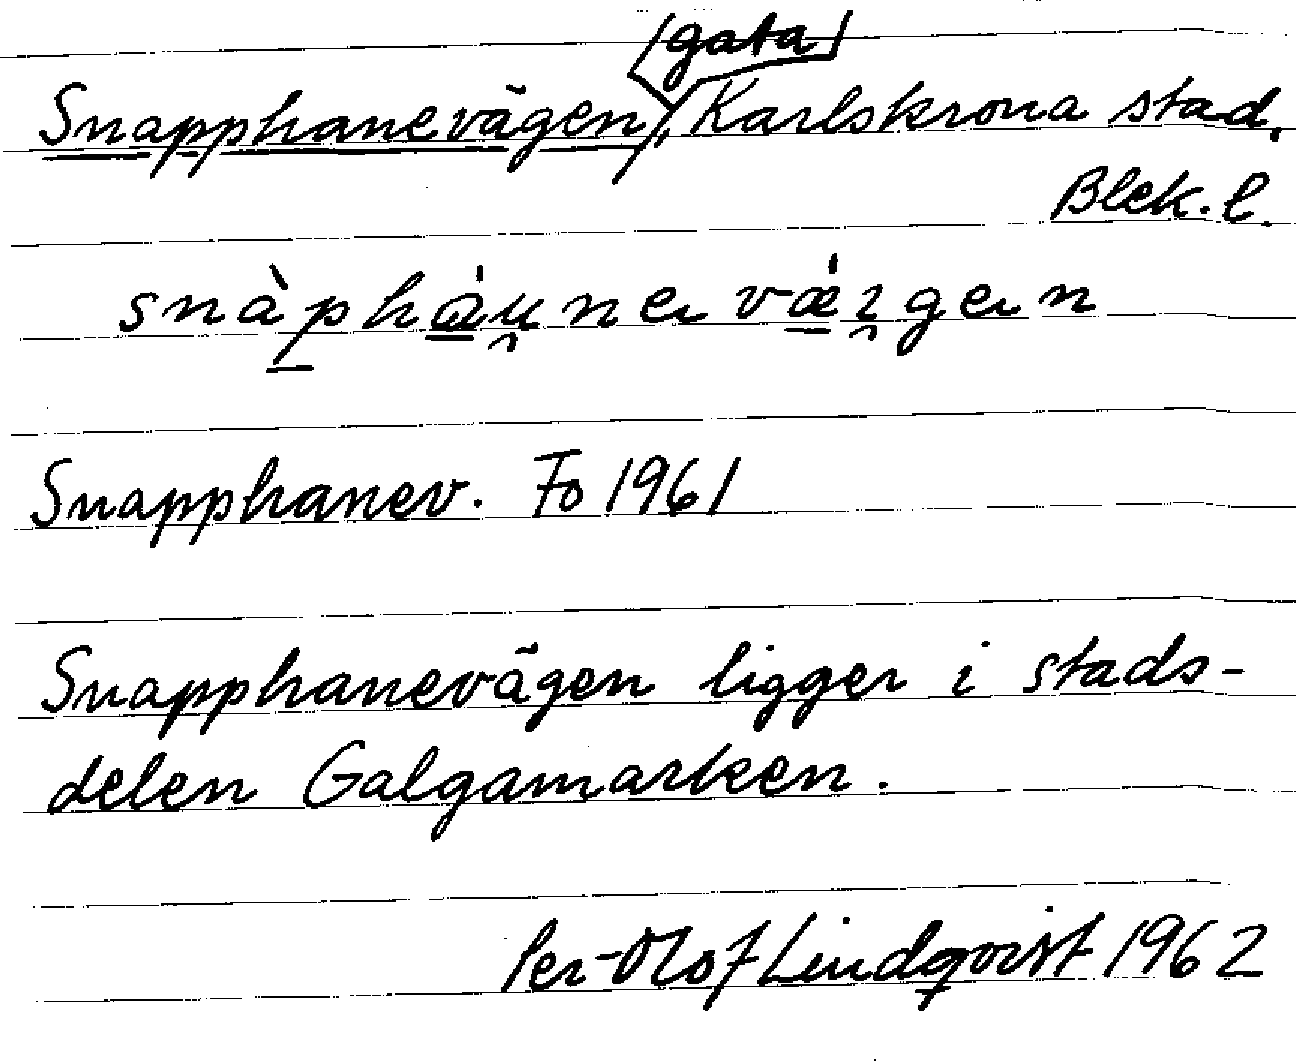 Snapphanevägen, [gata] Karlskrona stad.
Blek. l.
snàphàu̯nenvæ̀i̯gen
Snapphanev. Fo 1961
Snapphanevägen ligger i stads-
delen Galgamarken.
Per-Olof Lindqvist 1962